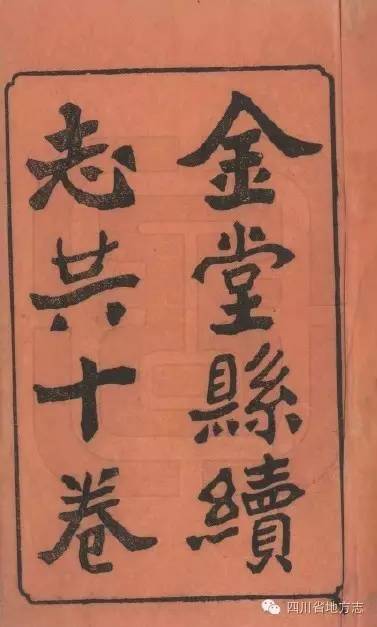 金堂縣續
志共十卷
四川省地方志